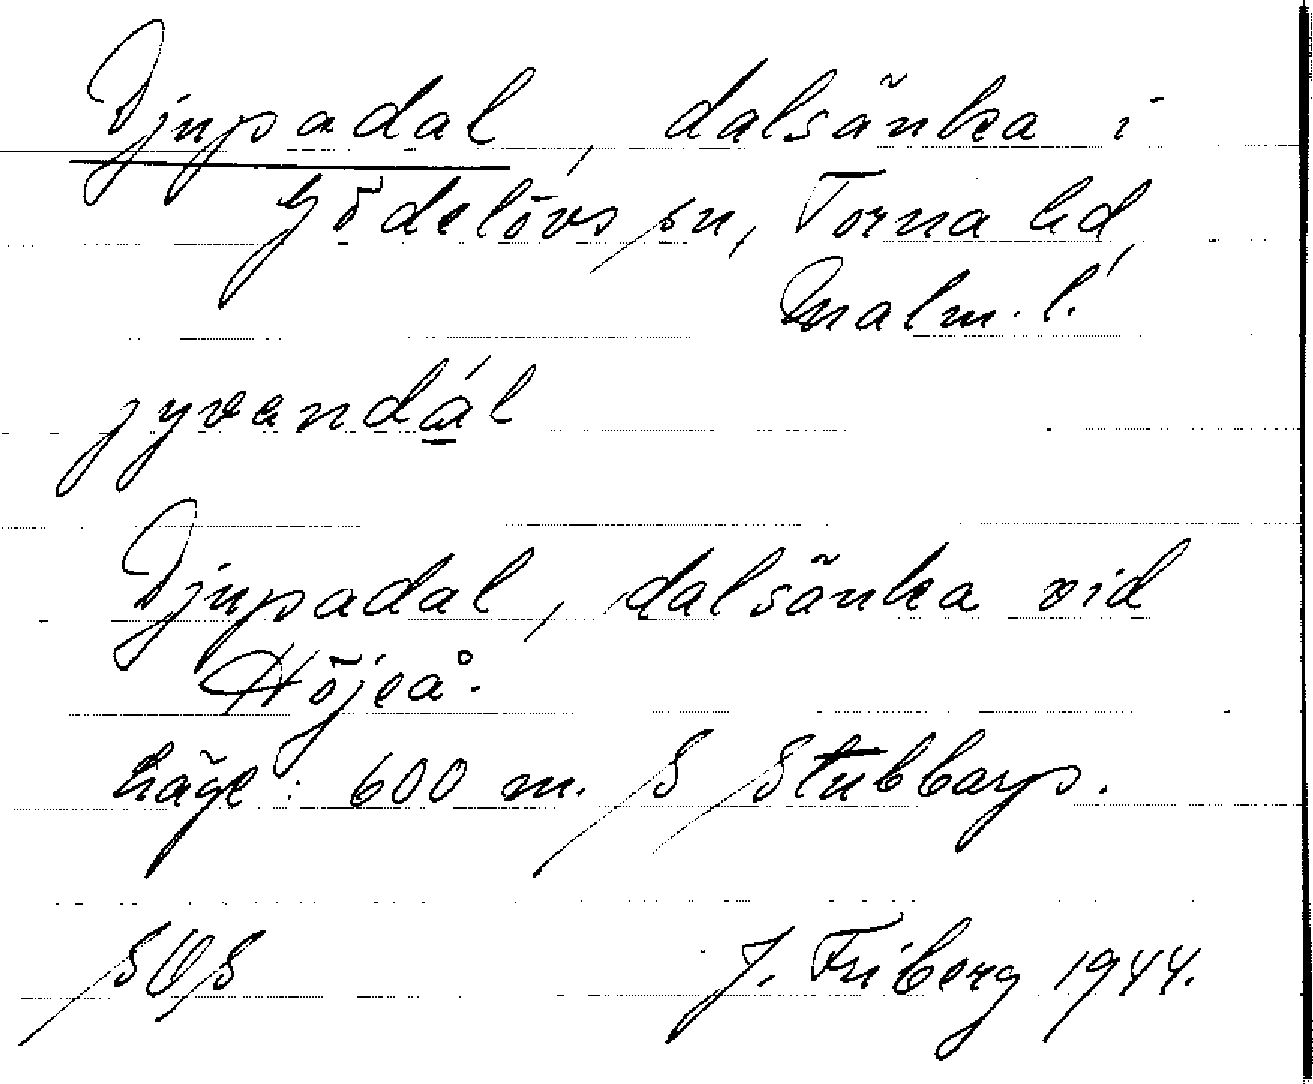 Djupadal, dalsänka i
Gödelövs sn, Torna hd,
Malm. l.
jyvandál
Djupadal, dalsänka vid
Höjeå.
Läge: 600 m. S Stubbarp.
J. Friberg 1944.